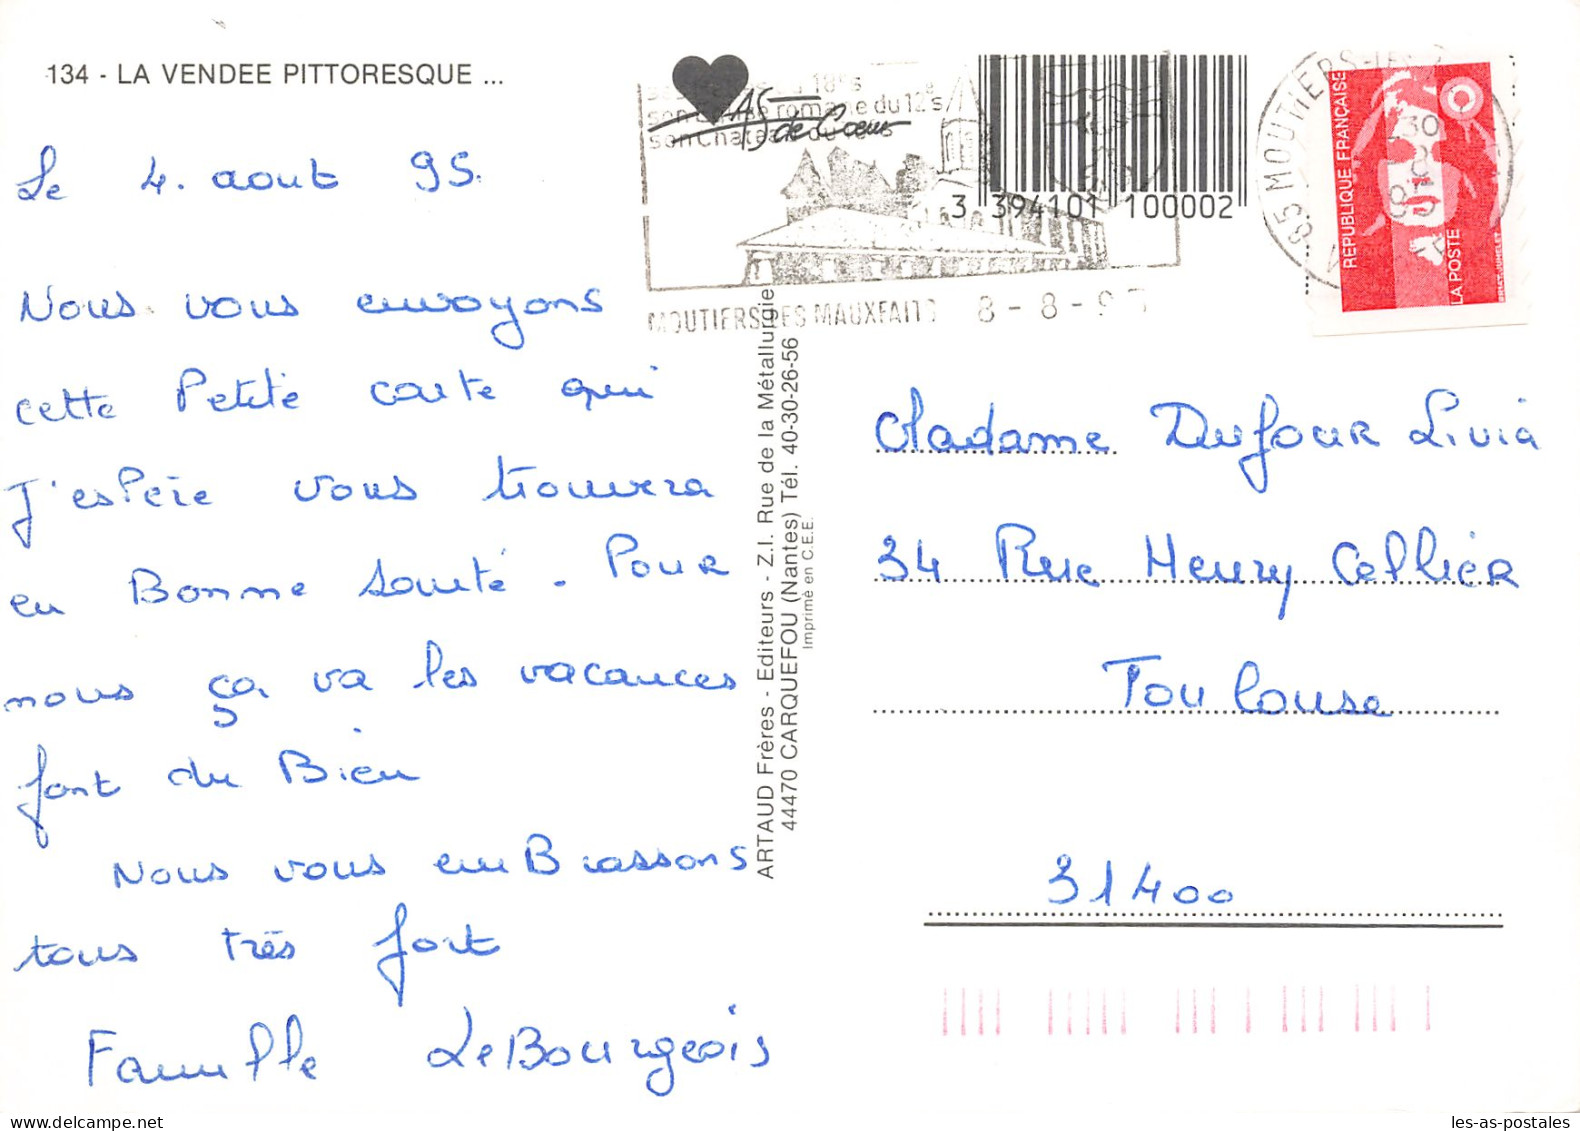 134 - LA VENDEE PITTORESQUE ...
Le 4. aout 95.
Nous vous envoyons
cette Petite carte qui
J'espère vous trouvera
en Bonne santé. Pour
nous ça va les vacances
font du Bien
Nous vous emBrassons
tous très fort
Famille LeBourgeois
ARTAUD Frères - Editeurs - Z.I. Rue de la Métallurgie
44470 CARQUEFOU (Nantes) Tél. 40-30-26-56
Imprimé en C.E.E.
AS de Cœur
18es
romane du 12es
son Chateau du
MOUTIERS LES MAUXFAITS 8-8-95
3 394101 100002
85 MOUTIERS-LES
REPUBLIQUE FRANÇAISE
LA POSTE
Madame Dufour Livia
34 Rue Henry Cellier
Toulouse
31400
les-as-postales